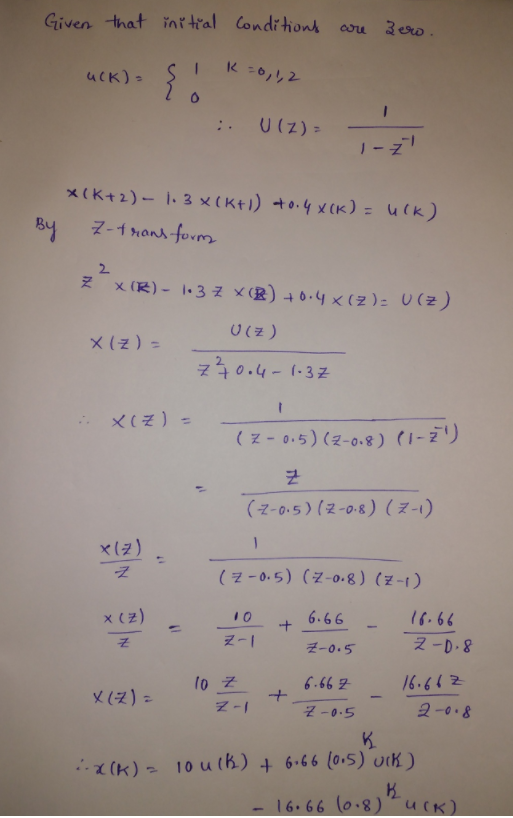 Given that initial conditions are zero.
u(K) = { 1 K = 0,1,2
0
∴ U(Z) = 1 / (1 - Z^-1)
x(K+2) - 1.3 x(K+1) + 0.4 x(K) = u(K)
By Z-transform
Z^2 x(Z) - 1.3 Z x(Z) + 0.4 x(Z) = U(Z)
X(Z) = U(Z) / (Z^2 + 0.4 - 1.3Z)
∴ X(Z) = 1 / ((Z - 0.5) (Z - 0.8) (1 - Z^-1))
= Z / ((Z - 0.5) (Z - 0.8) (Z - 1))
x(Z) / Z = 1 / ((Z - 0.5) (Z - 0.8) (Z - 1))
x(Z) / Z = 10 / (Z - 1) + 6.66 / (Z - 0.5) - 16.66 / (Z - 0.8)
X(Z) = 10 Z / (Z - 1) + 6.66 Z / (Z - 0.5) - 16.66 Z / (Z - 0.8)
∴ x(K) = 10 u(K) + 6.66 (0.5)^K u(K)
- 16.66 (0.8)^K u(K)